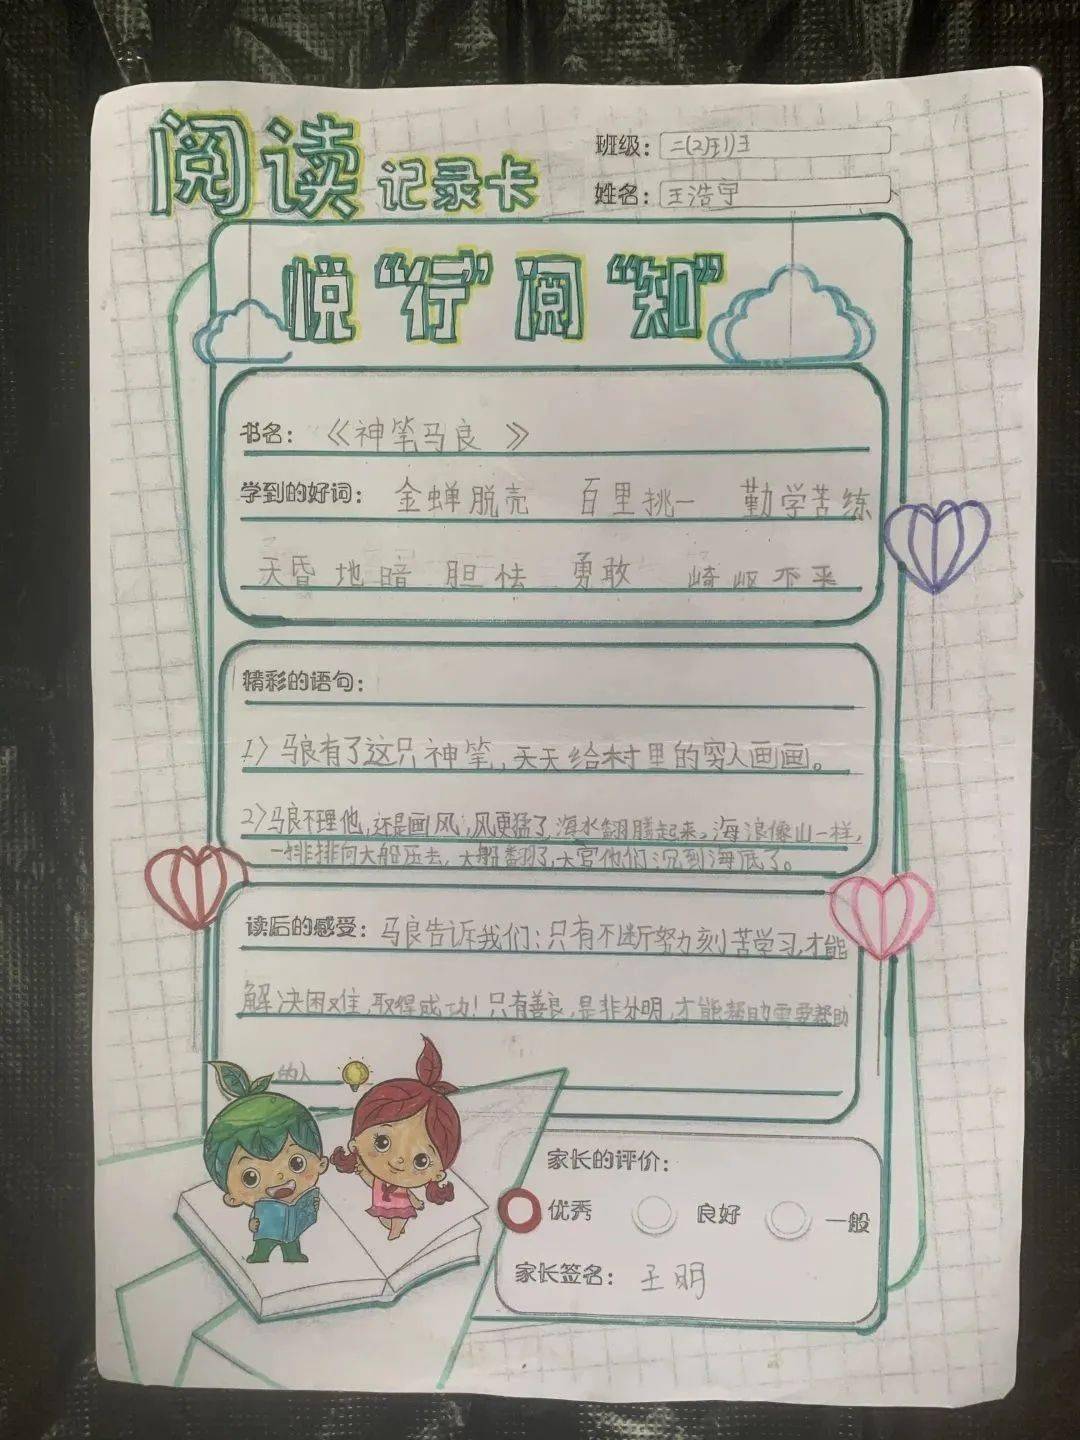 阅读记录卡
班级：二(2)班
姓名：王浩宇
悦“行”阅“知”
书名：《神笔马良》
学到的好词：金蝉脱壳 百里挑一 勤学苦练
天昏地暗 胆怯 勇敢 崎岖不平
精彩的语句：
1）马良有了这只神笔，天天给村里的穷人画画。
2）马良不理他，还是画风，风更猛了，海水翻腾起来。海浪像山一样，
一排排向大船压去，大船翻了，大官他们沉到海底了。
读后的感受：马良告诉我们：只有不断努力刻苦学习，才能
解决困难，取得成功！只有善良，是非分明，才能帮助需要帮助
的人
家长的评价：
优秀 良好 一般
家长签名：王明